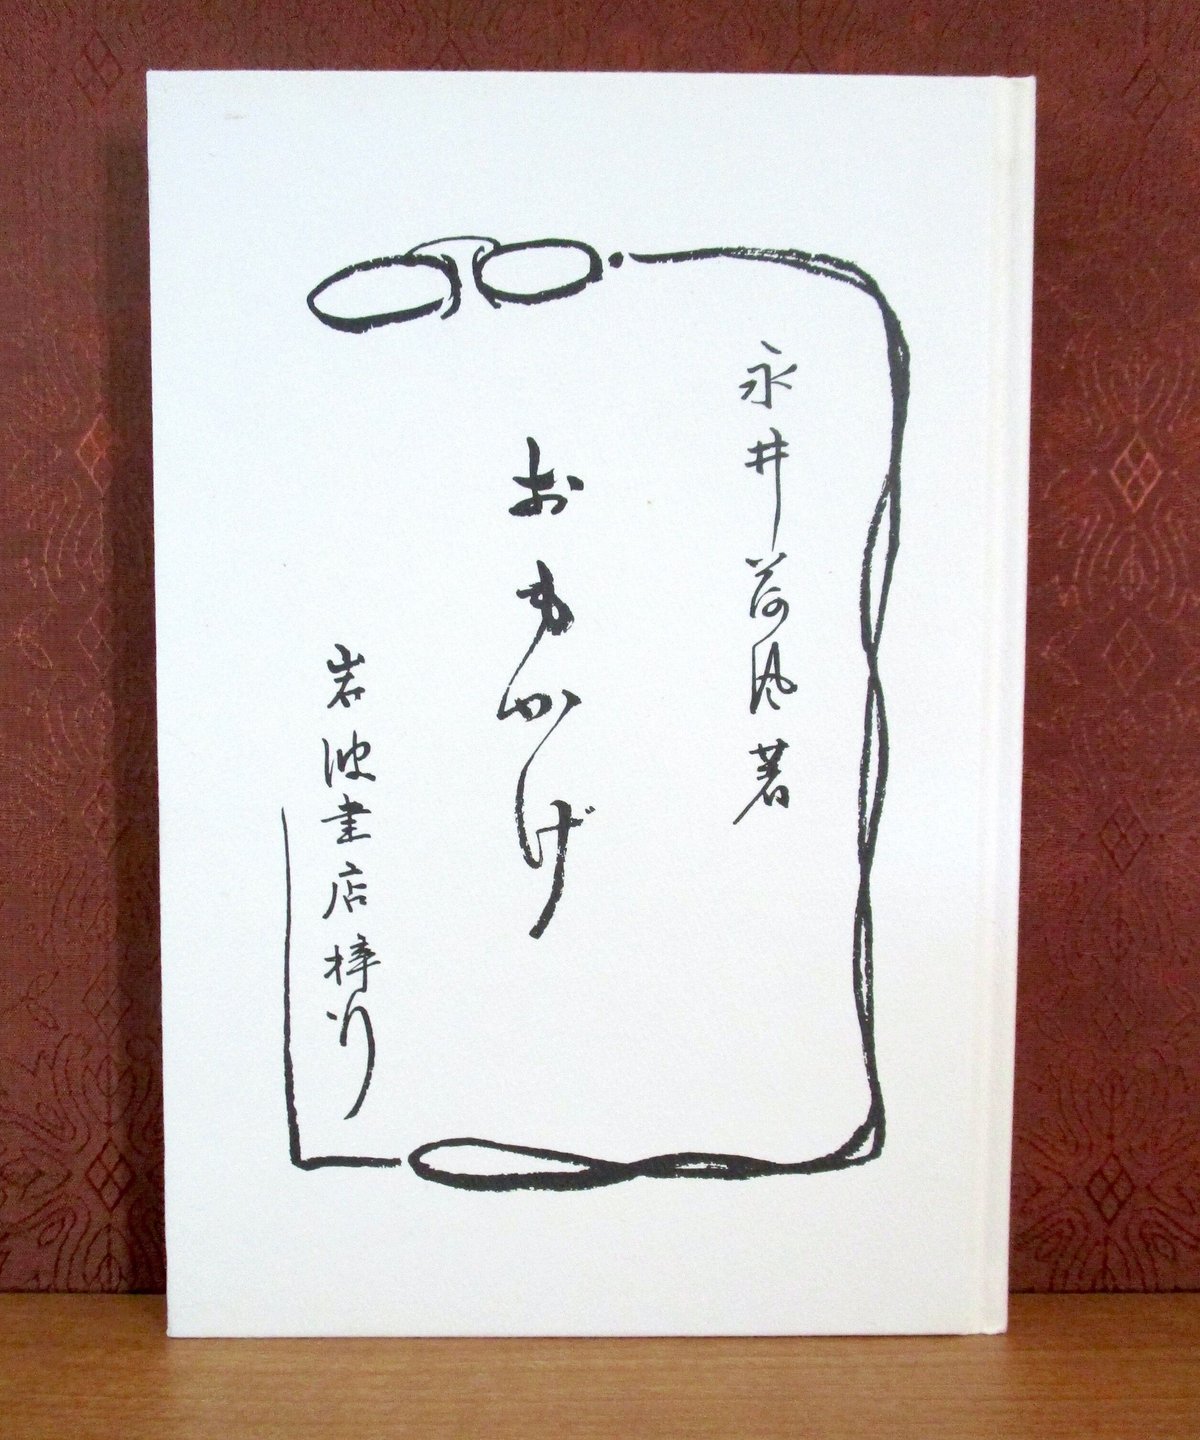 永井荷風著
おもかげ
岩波書店梓行